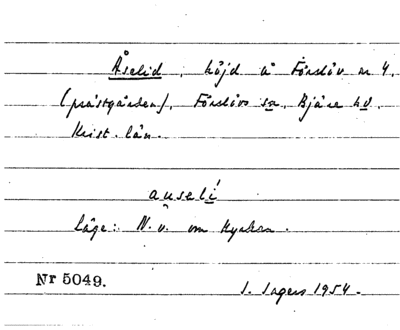 Åselid, höjd å Förslöv nr 4.
(prästgården), Förslövs sn, Bjäre hd
Krist. län.
auselí
läge: N.v. om kyrkan.
Nr 5049. I. Ingers 1954.